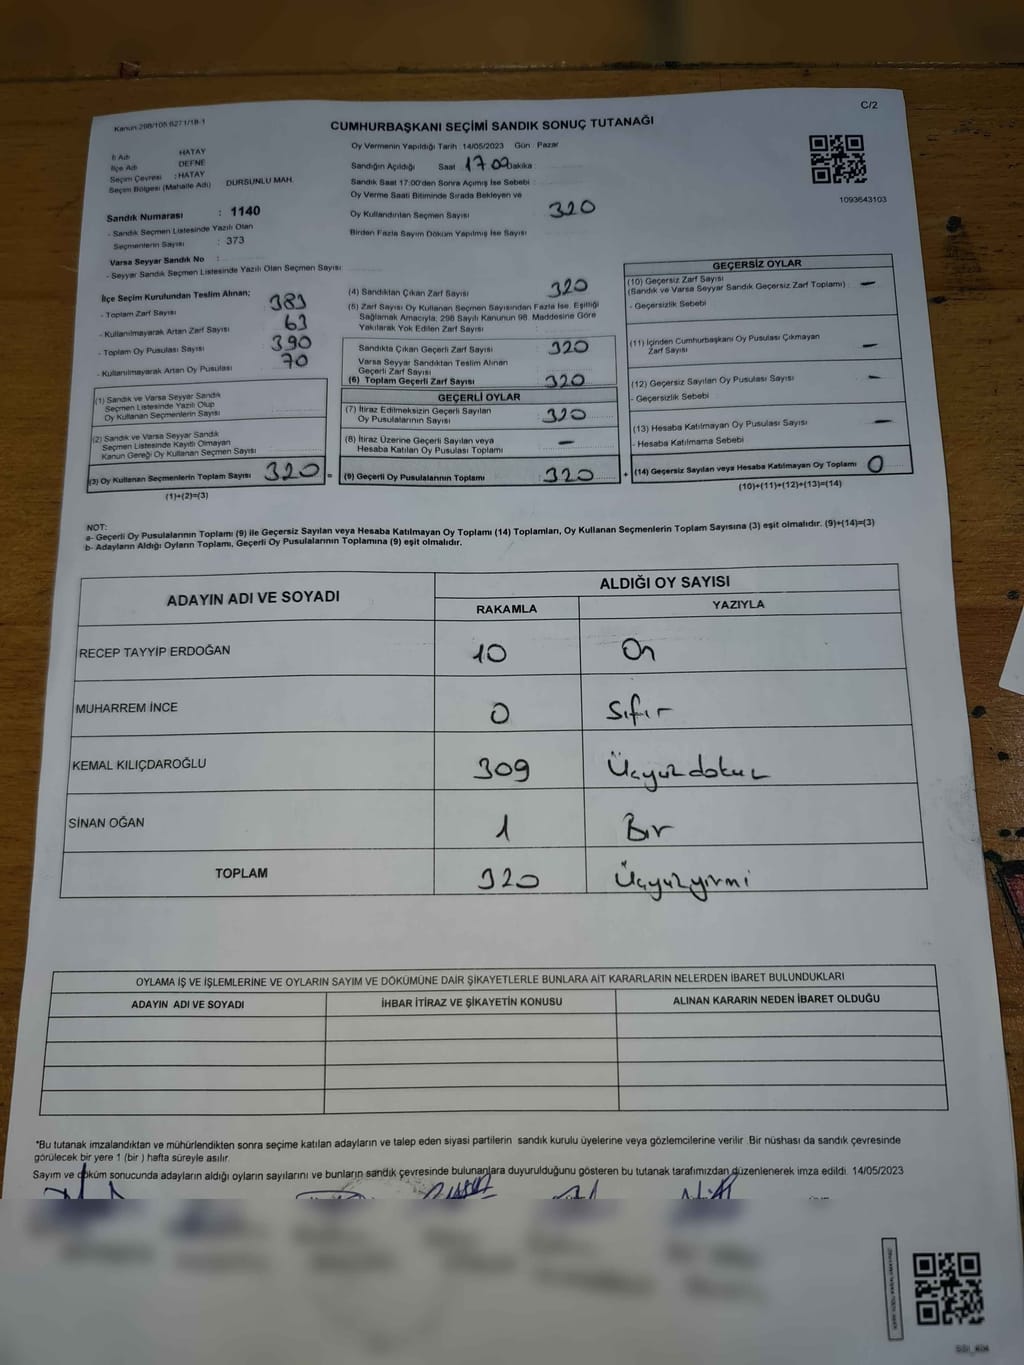 C/2
Kanun:298/105 6271/18-1
CUMHURBAŞKANI SEÇİMİ SANDIK SONUÇ TUTANAĞI
İl Adı HATAY
İlçe Adı DEFNE
Seçim Çevresi : HATAY
Seçim Bölgesi (Mahalle Adı) DURSUNLU MAH.
Oy Vermenin Yapıldığı Tarih 14/05/2023 Gün : Pazar
Sandığın Açıldığı Saat 17 00 Dakika :
Sandık Saat 17:00'den Sonra Açımış İse Sebebi :
Oy Verme Saati Bitiminde Sırada Bekleyen ve
Oy Kullandırılan Seçmen Sayısı 320
Birden Fazla Sayım Döküm Yapılmış İse Sayısı
1093643103
Sandık Numarası : 1140
- Sandık Seçmen Listesinde Yazılı Olan
Seçmenlerin Sayısı : 373
Varsa Seyyar Sandık No :
- Seyyar Sandık Seçmen Listesinde Yazılı Olan Seçmen Sayısı
İlçe Seçim Kurulundan Teslim Alınan;
- Toplam Zarf Sayısı 383
- Kullanılmayarak Artan Zarf Sayısı 63
- Toplam Oy Pusulası Sayısı 390
- Kullanılmayarak Artan Oy Pusulası 70
(1) Sandık ve Varsa Seyyar Sandık
Seçmen Listesinde Yazılı Olup
Oy Kullanan Seçmenlerin Sayısı
(2) Sandık ve Varsa Seyyar Sandık
Seçmen Listesinde Kayıtlı Olmayan
Kanun Gereği Oy Kullanan Seçmen Sayısı
(3) Oy Kullanan Seçmenlerin Toplam Sayısı 320 =
(1)+(2)=(3)
(4) Sandıktan Çıkan Zarf Sayısı 320
(5) Zarf Sayısı Oy Kullanan Seçmen Sayısından Fazla İse, Eşitliği
Sağlamak Amacıyla, 298 Sayılı Kanunun 98. Maddesine Göre
Yakılarak Yok Edilen Zarf Sayısı :
Sandıkta Çıkan Geçerli Zarf Sayısı 320
Varsa Seyyar Sandıktan Teslim Alınan
Geçerli Zarf Sayısı
(6) Toplam Geçerli Zarf Sayısı 320
GEÇERLİ OYLAR
(7) İtiraz Edilmeksizin Geçerli Sayılan
Oy Pusulalarının Sayısı 320
(8) İtiraz Üzerine Geçerli Sayılan veya
Hesaba Katılan Oy Pusulası Toplamı —
(9) Geçerli Oy Pusulalarının Toplamı 320 +
GEÇERSİZ OYLAR
(10) Geçersiz Zarf Sayısı
(Sandık ve Varsa Seyyar Sandık Geçersiz Zarf Toplamı) : —
- Geçersizlik Sebebi
(11) İçinden Cumhurbaşkanı Oy Pusulası Çıkmayan
Zarf Sayısı —
(12) Geçersiz Sayılan Oy Pusulası Sayısı —
- Geçersizlik Sebebi
(13) Hesaba Katılmayan Oy Pusulası Sayısı —
- Hesaba Katılmama Sebebi
(14) Geçersiz Sayılan veya Hesaba Katılmayan Oy Toplamı 0
(10)+(11)+(12)+(13)=(14)
NOT:
a- Geçerli Oy Pusulalarının Toplamı (9) ile Geçersiz Sayılan veya Hesaba Katılmayan Oy Toplamı (14) Toplamları, Oy Kullanan Seçmenlerin Toplam Sayısına (3) eşit olmalıdır. (9)+(14)=(3)
b- Adayların Aldığı Oyların Toplamı, Geçerli Oy Pusulalarının Toplamına (9) eşit olmalıdır.
ADAYIN ADI VE SOYADI ALDIĞI OY SAYISI
RAKAMLA YAZIYLA
RECEP TAYYİP ERDOĞAN 10 On
MUHARREM İNCE 0 Sıfır
KEMAL KILIÇDAROĞLU 309 Üçyüzdokuz
SİNAN OĞAN 1 Bir
TOPLAM 320 Üçyüzyirmi
OYLAMA İŞ VE İŞLEMLERİNE VE OYLARIN SAYIM VE DÖKÜMÜNE DAİR ŞİKAYETLERLE BUNLARA AİT KARARLARIN NELERDEN İBARET BULUNDUKLARI
ADAYIN ADI VE SOYADI İHBAR İTİRAZ VE ŞİKAYETİN KONUSU ALINAN KARARIN NEDEN İBARET OLDUĞU
*Bu tutanak imzalandıktan ve mühürlendikten sonra seçime katılan adayların ve talep eden siyasi partilerin sandık kurulu üyelerine veya gözlemcilerine verilir. Bir nüshası da sandık çevresinde
görülecek bir yere 1 (bir ) hafta süreyle asılır.
Sayım ve döküm sonucunda adayların aldığı oyların sayılarını ve bunların sandık çevresinde bulunanlara duyurulduğunu gösteren bu tutanak tarafımızdan düzenlenerek imza edildi. 14/05/2023